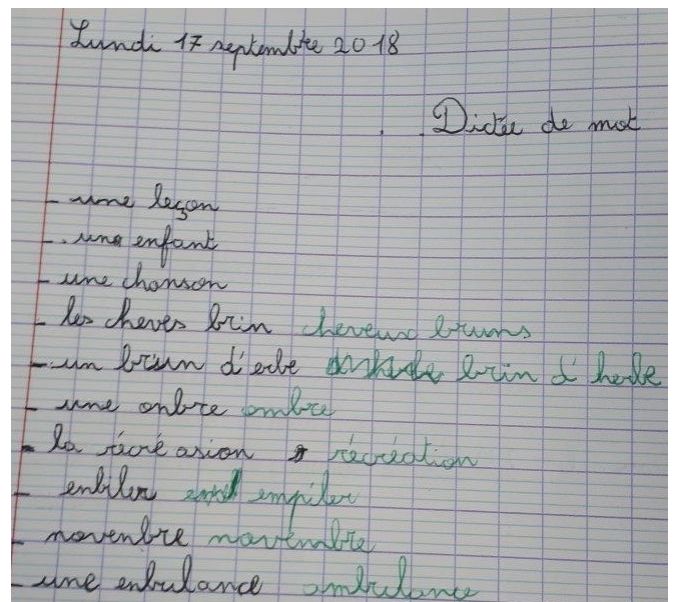 Lundi 17 septembre 2018
Dictée de mot
- une leçon
- une enfant
- une chonson
- les cheves brin cheveux bruns
- un brun d'erbe brin d'herbe
- une onbre ombre
- la récréasion récréation
- enbiler empiler
- novenbre novembre
- une enbulance ambulance